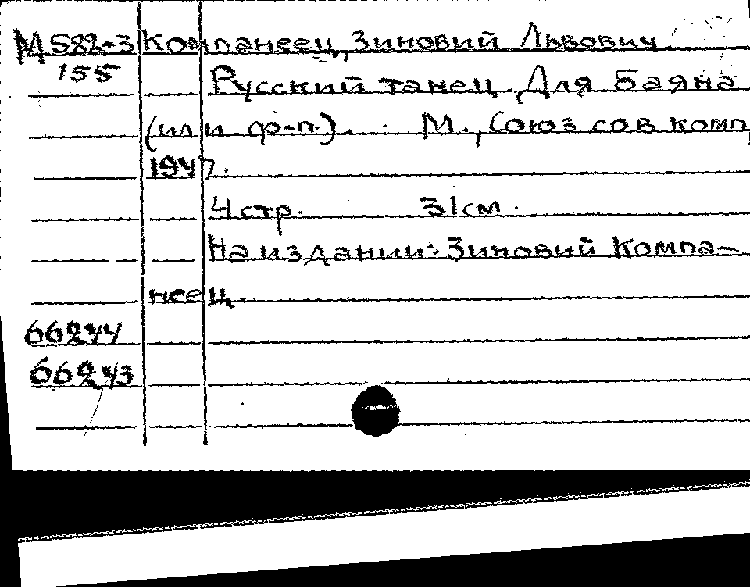 М582-3 Компанеец, Зиновий Львович
155 Русский танец. Для баяна
(или ф-п.). М., Союз сов комп,
1947.
4 стр. 31 см.
На издании: Зиновий Компа-
неец.
66244
66243